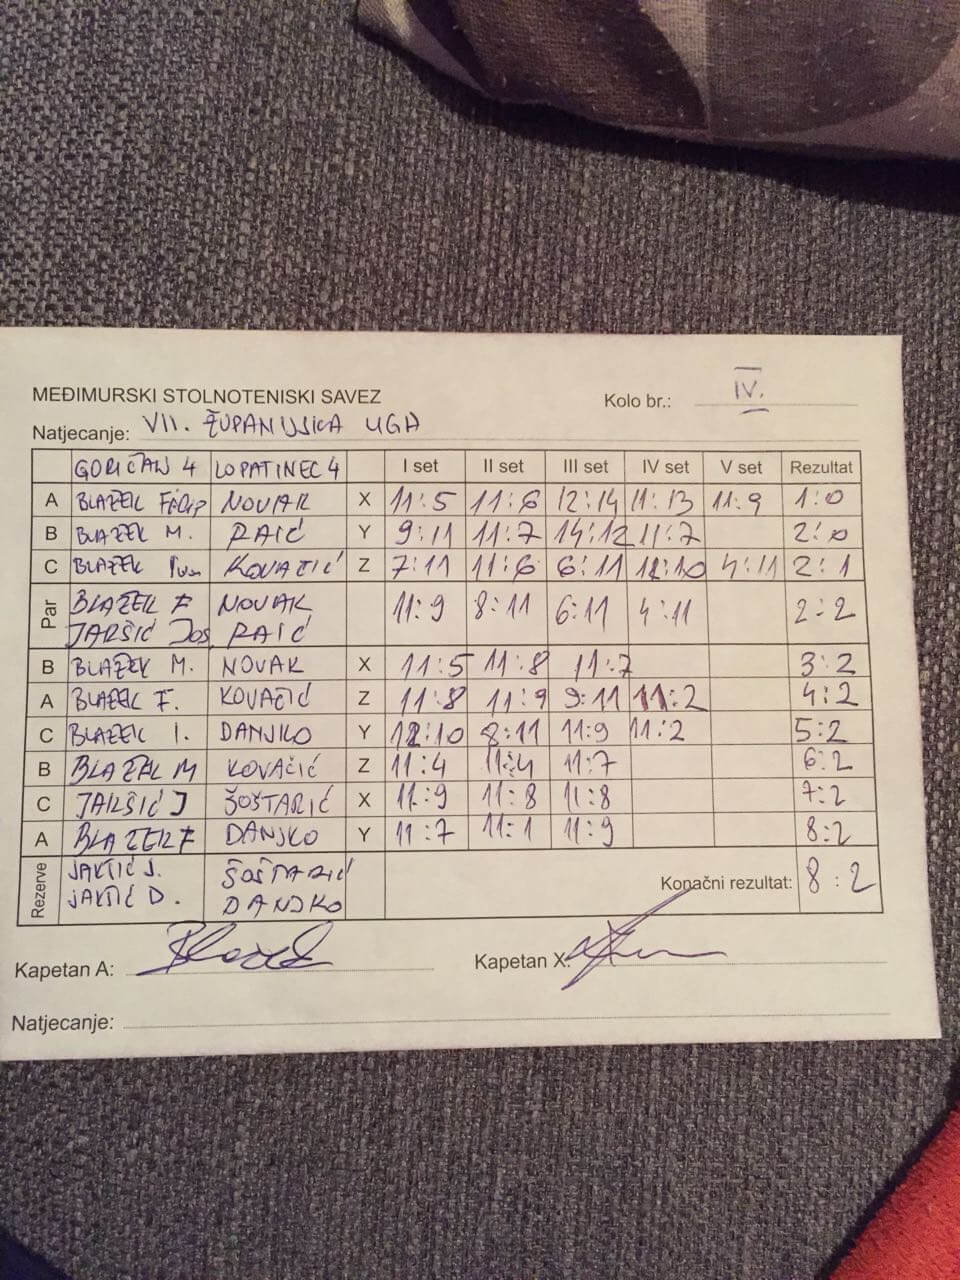 MEĐIMURSKI STOLNOTENISKI SAVEZ
Kolo br.: IV.
Natjecanje: VII. ŽUPANIJSKA LIGA
GORIČAN 4 LOPATINEC 4 I set II set III set IV set V set Rezultat
A BLAŽEK Filip NOVAK X 11:5 11:6 12:14 11:13 11:9 1:0
B BLAŽEK M. RAIĆ Y 9:11 11:7 14:12 11:7 2:0
C BLAŽEK KOVAČIĆ Z 7:11 11:6 6:11 12:10 4:11 2:1
Par BLAŽEK F NOVAK 11:9 8:11 6:11 4:11 2:2
JARŠIĆ Jos RAIĆ
B BLAŽEK M. NOVAK X 11:5 11:8 11:7 3:2
A BLAŽEK F. KOVAČIĆ Z 11:8 11:9 9:11 11:2 4:2
C BLAŽEK I. DANJKO Y 12:10 8:11 11:9 11:2 5:2
B BLAŽEK M KOVAČIĆ Z 11:4 11:4 11:7 6:2
C JARŠIĆ J ŠOŠTARIĆ X 11:9 11:8 11:8 7:2
A BLAŽEK F DANJKO Y 11:7 11:1 11:9 8:2
Rezerve J. ŠOŠTARIĆ Konačni rezultat: 8:2
D. DANJKO
Kapetan A:
Kapetan X:
Natjecanje: